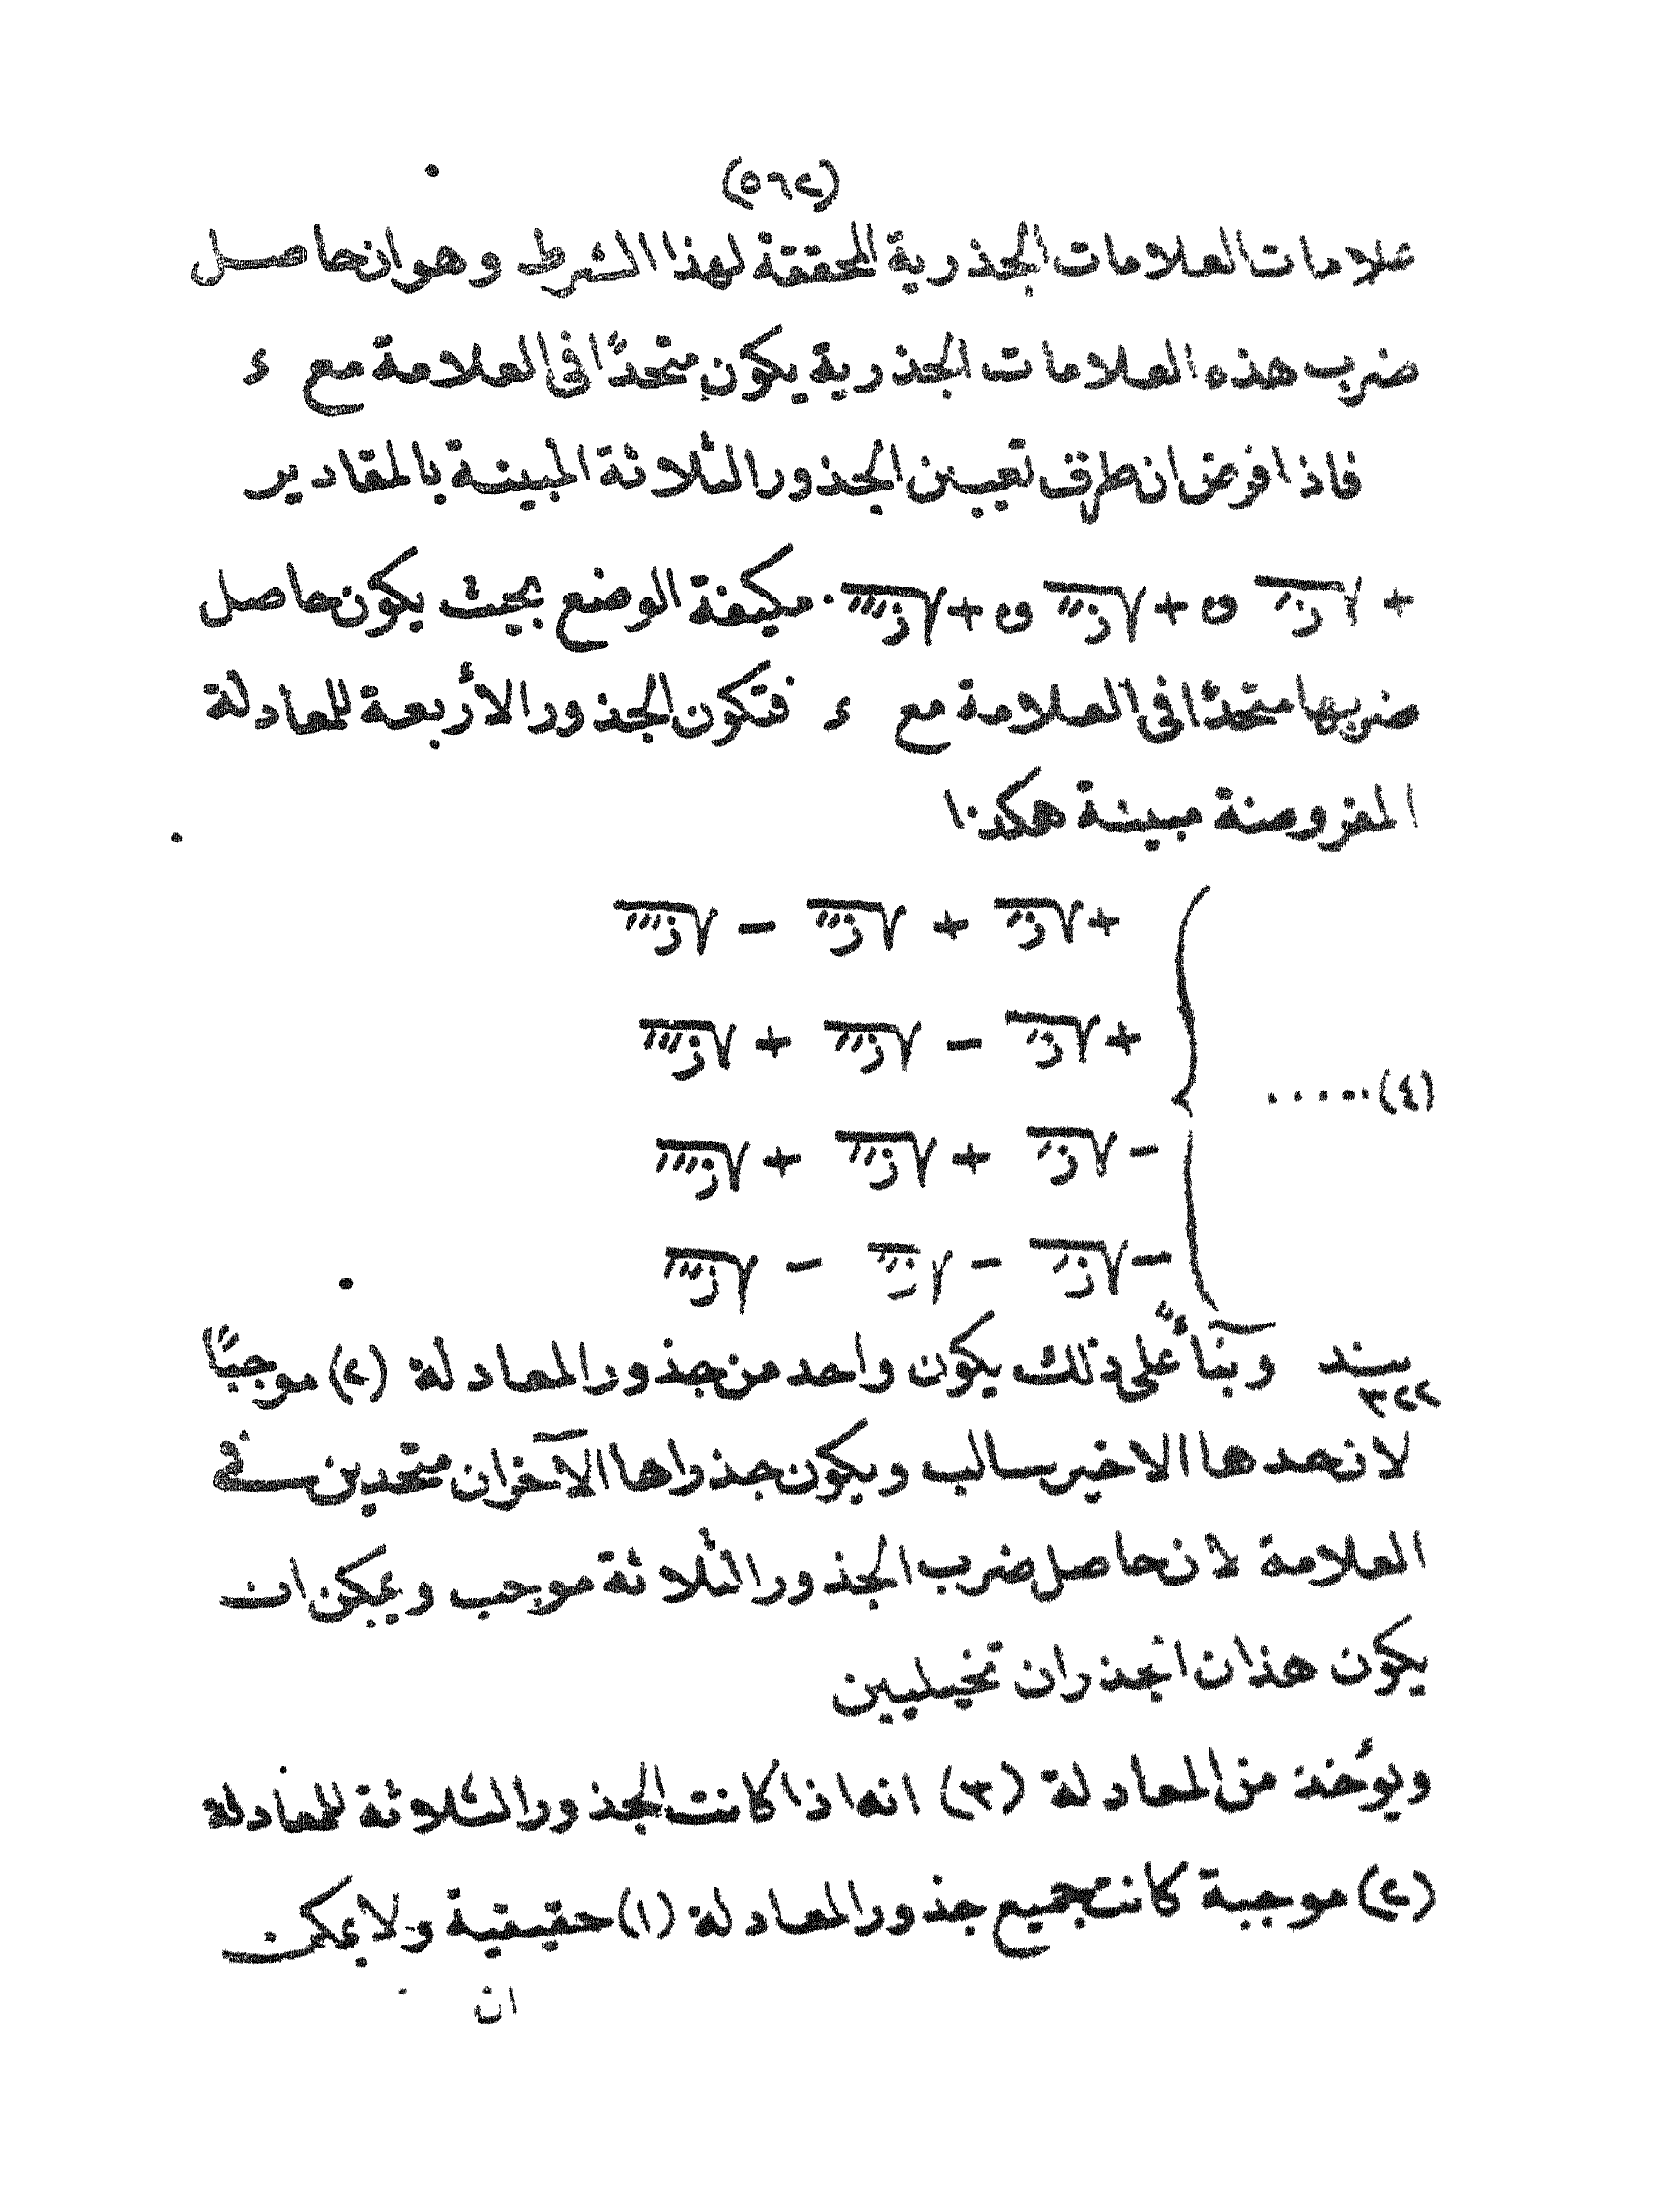 (٥٦٢)
علامات العلامات الجذرية المحققة لهذا الشرط وهو ان حاصل
ضرب هذه العلامات الجذرية يكون متحدًا فى العلامة مع ء
فاذا فرض ان طرق تعيين الجذور الثلاثة المبينة بالمقادير
+ √ز′ و + √ز″ و + √ز‴ مكيفة الوضع بحيث يكون حاصل
ضربها متحدًا فى العلامة مع ء فتكون الجذور الأربعة للمعادلة
المفروضة مبينة هكذا
+ √ز′ + √ز″ − √ز‴
+ √ز′ − √ز″ + √ز‴
(٤) .....
− √ز′ + √ز″ + √ز‴
− √ز′ − √ز″ − √ز‴
بند ٣٢٢ وبنآءً على ذلك يكون واحد من جذور المعادلة (٢) موجبًا
لان حدها الاخير سالب ويكون جذراها الآخران متحدين فى
العلامة لان حاصل ضرب الجذور الثلاثة موجب ويمكن ان
يكون هذان الجذران تخيليين
ويؤخذ من المعادلة (٣) انه اذا كانت الجذور الثلاثة للمعادلة
(٢) موجبة كانت جميع جذور المعادلة (١) حقيقية ولا يمكن
ان